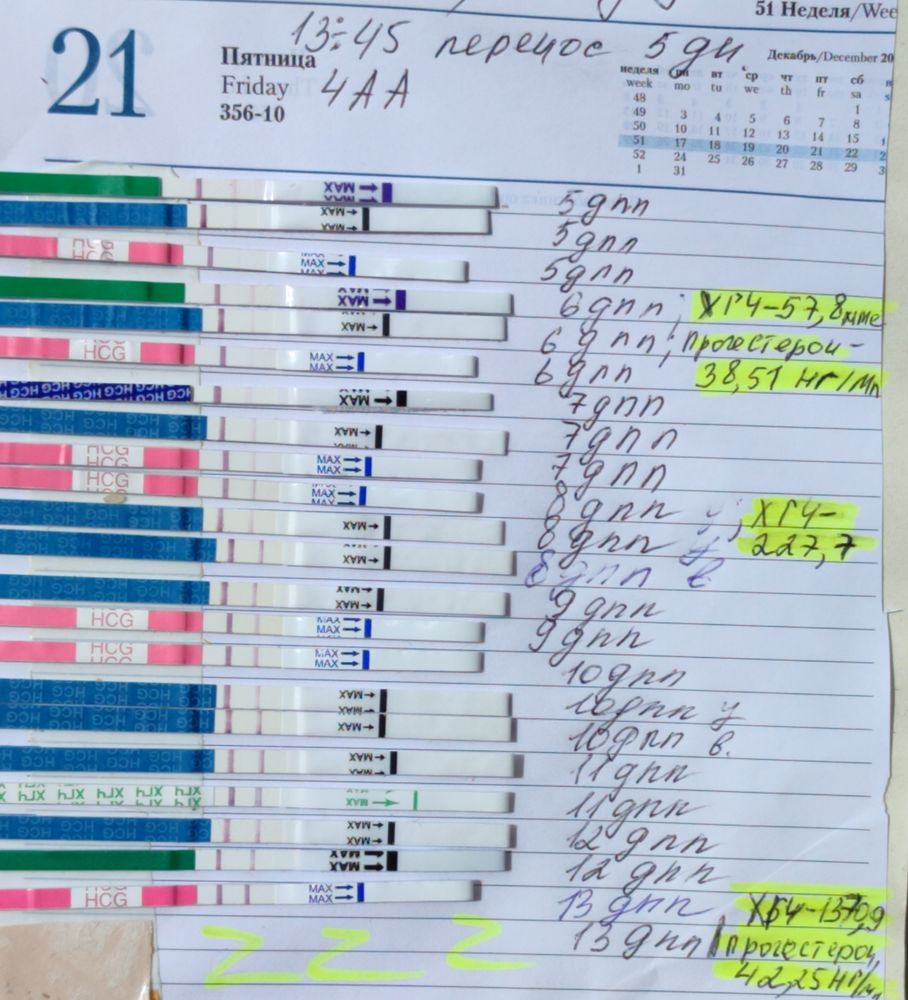 51 Неделя/Wee
21
13:45 перенос 5 дн
Пятница
Friday 4АА
356-10
Декабрь/December 20
неделя пн вт ср чт пт сб
week mo tu we th fr sa
48 1
49 3 4 5 6 7 8
50 10 11 12 13 14 15
51 17 18 19 20 21 22 2
52 24 25 26 27 28 29 3
1 31
MAX 5дпп
MAX 5дпп
HCG MAX 5дпп
MAX 6дпп; ХГЧ-57,8мме
MAX 6дпп; прогестерон-
HCG MAX 6дпп 38,51 нг/мл
HCG HCG HCG HCG HCG MAX 7дпп
MAX 7дпп
HCG MAX 7дпп
HCG MAX 8дпп у, ХГЧ-
MAX 8дпп у 227,7
MAX 8дпп в
MAX 9дпп
HCG MAX 9дпп
HCG MAX 10дпп
MAX 10дпп у
MAX 10дпп в.
MAX 11дпп
ХГЧ ХГЧ ХГЧ ХГЧ MAX 11дпп
MAX 12дпп
MAX 12дпп
HCG MAX 13дпп ХГЧ-1370,9
13дпп прогестерон,
42,25нг/мл